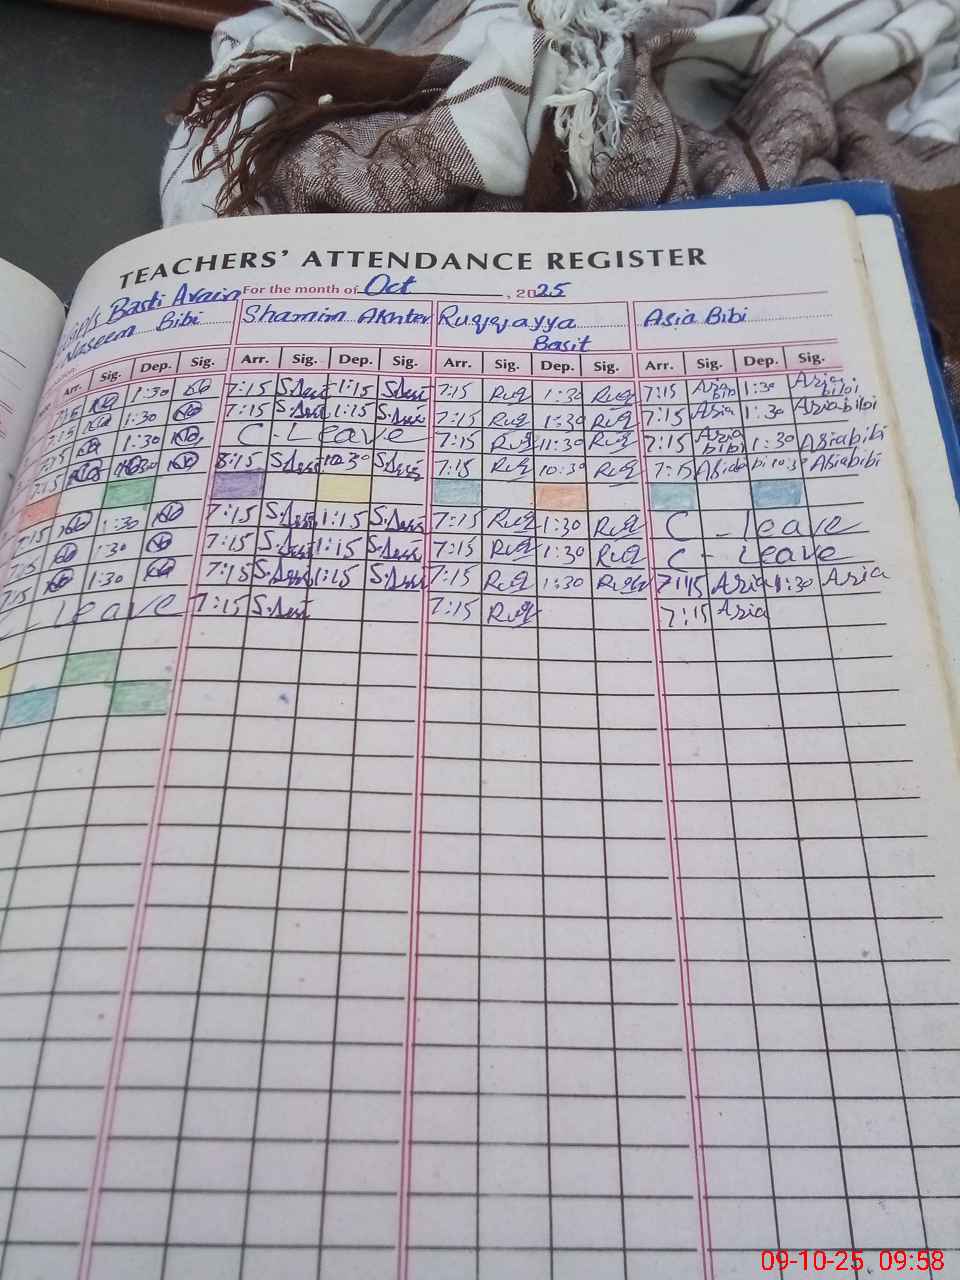 TEACHERS' ATTENDANCE REGISTER
For the month of Oct, 2025
Basti Arain
Naseem Bibi Shamim Akhter Ruqqayya Basit Asia Bibi
Arr. Sig. Dep. Sig. Arr. Sig. Dep. Sig. Arr. Sig. Dep. Sig. Arr. Sig. Dep. Sig.
7:15 1:30 7:15 1:15 7:15 Ruq 1:30 Ruq 7:15 Asia bibi 1:30 Asia bibi
7:15 1:30 7:15 1:15 7:15 Ruq 1:30 Ruq 7:15 Asia 1:30 Asia bibi
7:15 1:30 C-Leave 7:15 Ruq 1:30 Ruq 7:15 Asia bibi 1:30 Asia bibi
7:15 10:30 8:15 10:30 7:15 Ruq 10:30 Ruq 7:15 Asia bibi 10:30 Asia bibi
7:15 1:30 7:15 1:15 7:15 Ruq 1:30 Ruq C - leave
7:15 1:30 7:15 1:15 7:15 Ruq 1:30 Ruq C - Leave
7:15 1:30 7:15 1:15 7:15 Ruq 1:30 Ruq 7:15 Asia 1:30 Asia
C Leave 7:15 7:15 Ruq 7:15 Asia
09-10-25 09:58